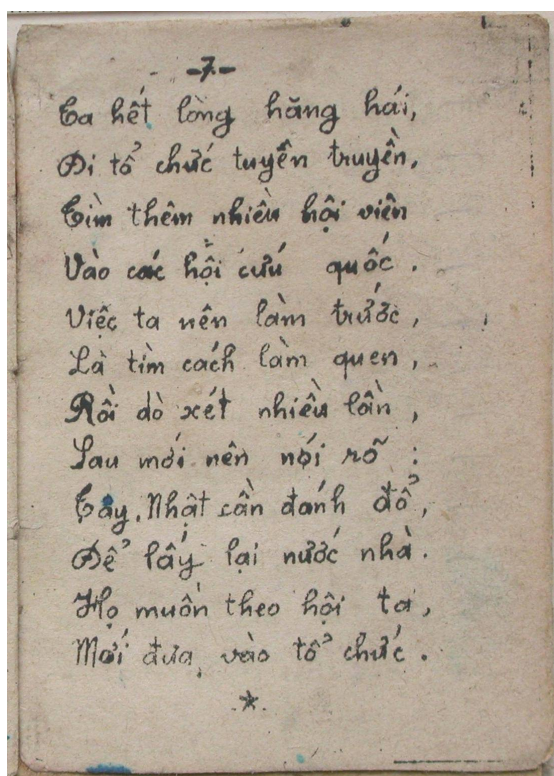 -7-
Ta hết lòng hăng hái,
Đi tổ chức tuyên truyền,
Tìm thêm nhiều hội viên
Vào các hội cứu quốc.
Việc ta nên làm trước,
Là tìm cách làm quen,
Rồi dò xét nhiều lần,
Sau mới nên nói rõ :
Tây, Nhật cần đánh đổ,
Để lấy lại nước nhà.
Họ muốn theo hội ta,
Mới đưa vào tổ chức.